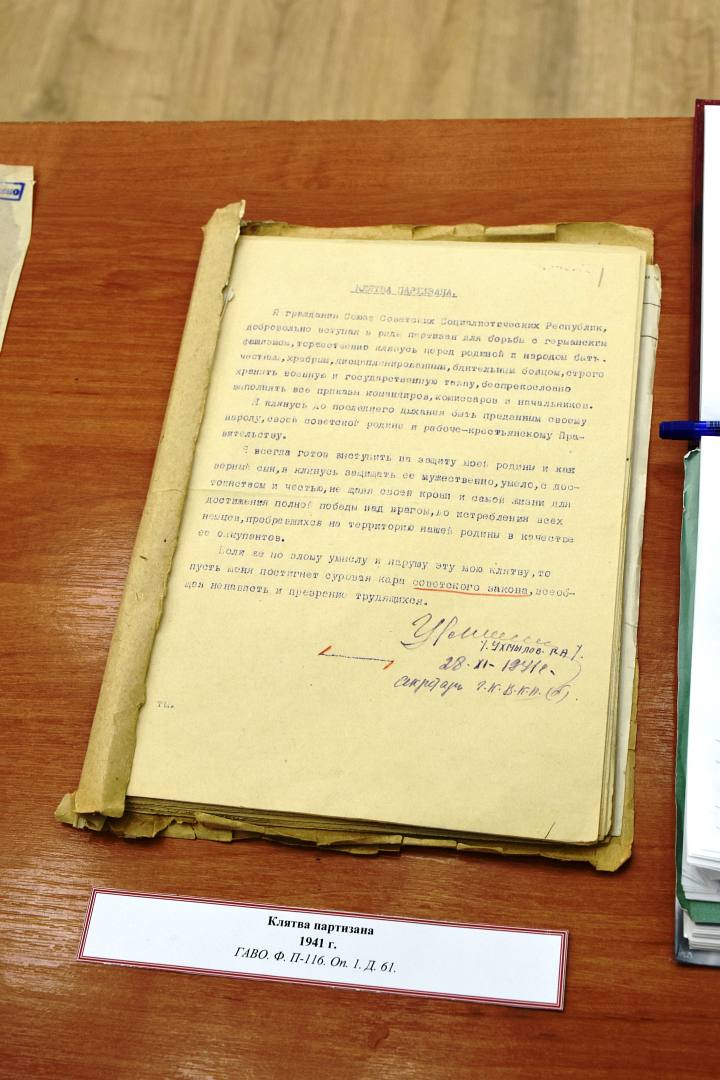 КЛЯТВА ПАРТИЗАНА.
Я гражданин Союз Советских Социалистических Республик,
добровольно вступая в ряды партизан для борьбы с германским
фашизмом,торжественно клянусь перед родиной и народом быть
честным,храбрым,дисциплинированным,бдительным бойцом,строго
хранить военную и государственную тайну,беспрекословно
выполнять все приказы командиров,комиссаров и начальников.
Я клянусь до последнего дыхания быть преданным своему
народу,своей советской родине и рабоче-крестьянскому Пра-
вительству.
Я всегда готов выступить на защиту моей родины и как
верный сын,я клянусь защищать ее мужественно,умело,с дос-
тоинством и честью,не щадя своей крови и самой жизни для
достижения полной победы над врагом,до истребления всех
немцев,пробравшихся на территорию нашей родины в качестве
ее оккупантов.
Если же по злому умыслу я нарушу эту мою клятву,то
пусть меня постигнет суровая кара советского закона,всеоб-
щая ненависть и презрение трудящихся.
/.Ухмылов П.А./.
28-XI-1941г.
секретарь Г.К.В.К.П.(б).
тм.
Клятва партизана
1941 г.
ГАВО. Ф. П-116. Оп. 1. Д. 61.